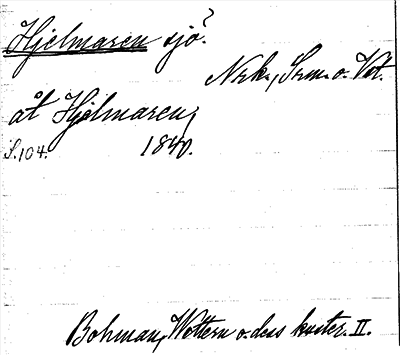 Hjelmaren sjö.
Nrk., Srm. o. Vst.
åt Hjelmaren,
S. 104. 1840.
Bohman, Wettern o. dess kuster. II.